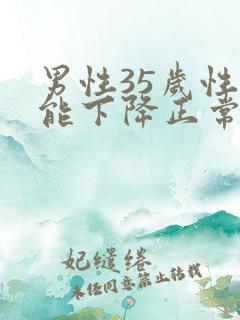 男性35岁性
能下降正常
妃缱绻
未经同意禁止转载